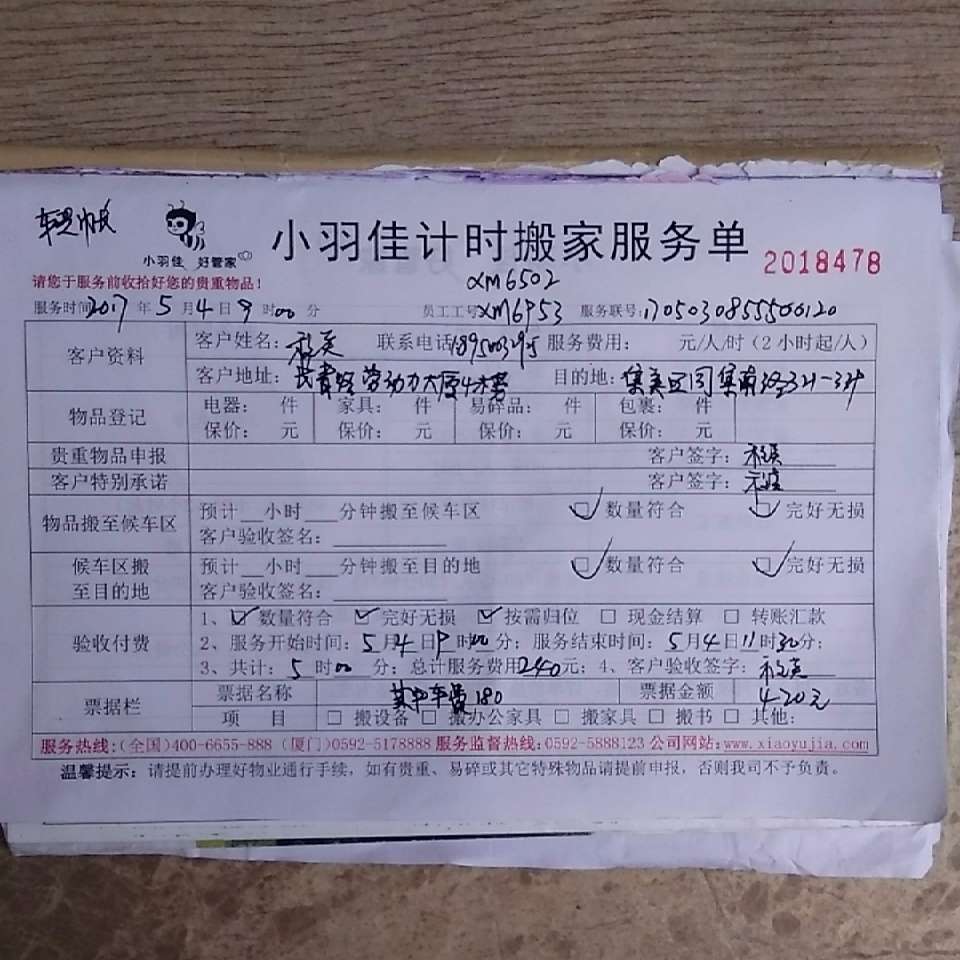 小羽佳 好管家
小羽佳计时搬家服务单
2018478
请您于服务前收拾好您的贵重物品！
XM6502
服务时间2017年5月4日9时00分 员工工号XM6953 服务联号:
客户资料 客户姓名： 联系电话 服务费用： 元/人/时（2小时起/人）
客户地址： 劳动力大厦 目的地：集美区同集南路321-329
物品登记 电器： 件 家具： 件 易碎品： 件 包裹： 件
保价： 元 保价： 元 保价： 元 保价： 元
贵重物品申报 客户签字：
客户特别承诺 客户签字：
物品搬至候车区 预计__小时___分钟搬至候车区 数量符合 完好无损
客户验收签名：
候车区搬至目的地 预计__小时___分钟搬至目的地 数量符合 完好无损
客户验收签名：
验收付费 1、数量符合 完好无损 按需归位 现金结算 转账汇款
2、服务开始时间：5月4日9时00分；服务结束时间：5月4日11时30分；
3、共计：5时00分；总计服务费用240元；4、客户验收签字：
票据栏 票据名称 其中车费180 票据金额 420元
项 目 搬设备 搬办公家具 搬家具 搬书 其他：
服务热线：(全国)400-6655-888 (厦门)0592-5178888 服务监督热线：0592-5888123 公司网站：www.xiaoyujia.com
温馨提示：请提前办理好物业通行手续，如有贵重、易碎或其它特殊物品请提前申报，否则我司不予负责。